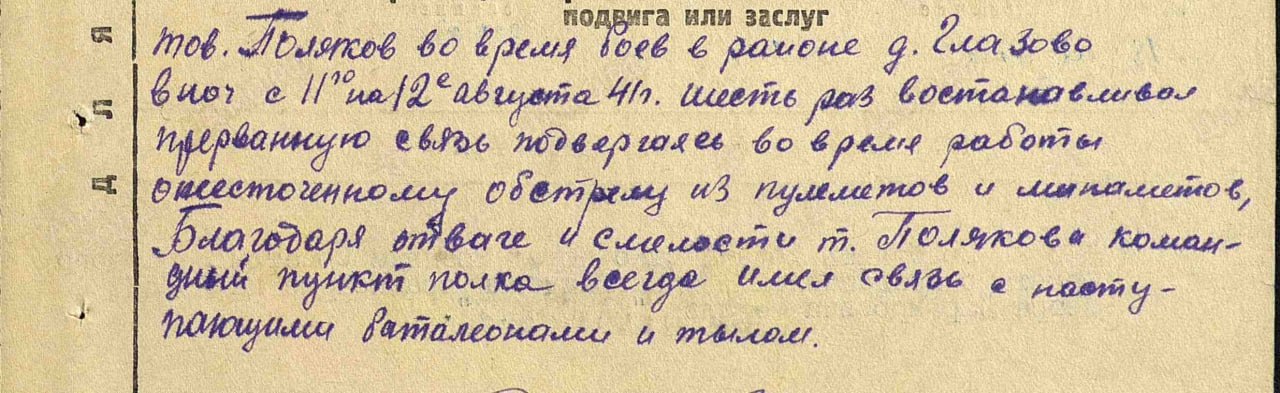 подвига или заслуг
тов. Поляков во время боев в районе д. Глазово
в ноч с 11го на 12е августа 41г. шесть раз востанавливал
прерванную связь подвергаясь во время работы
ожесточенному обстрелу из пулеметов и минаметов,
Благодаря отваге и смелости т. Полякова коман-
дный пункт полка всегда имел связь с насту-
пающими баталеонами и тылом.
для